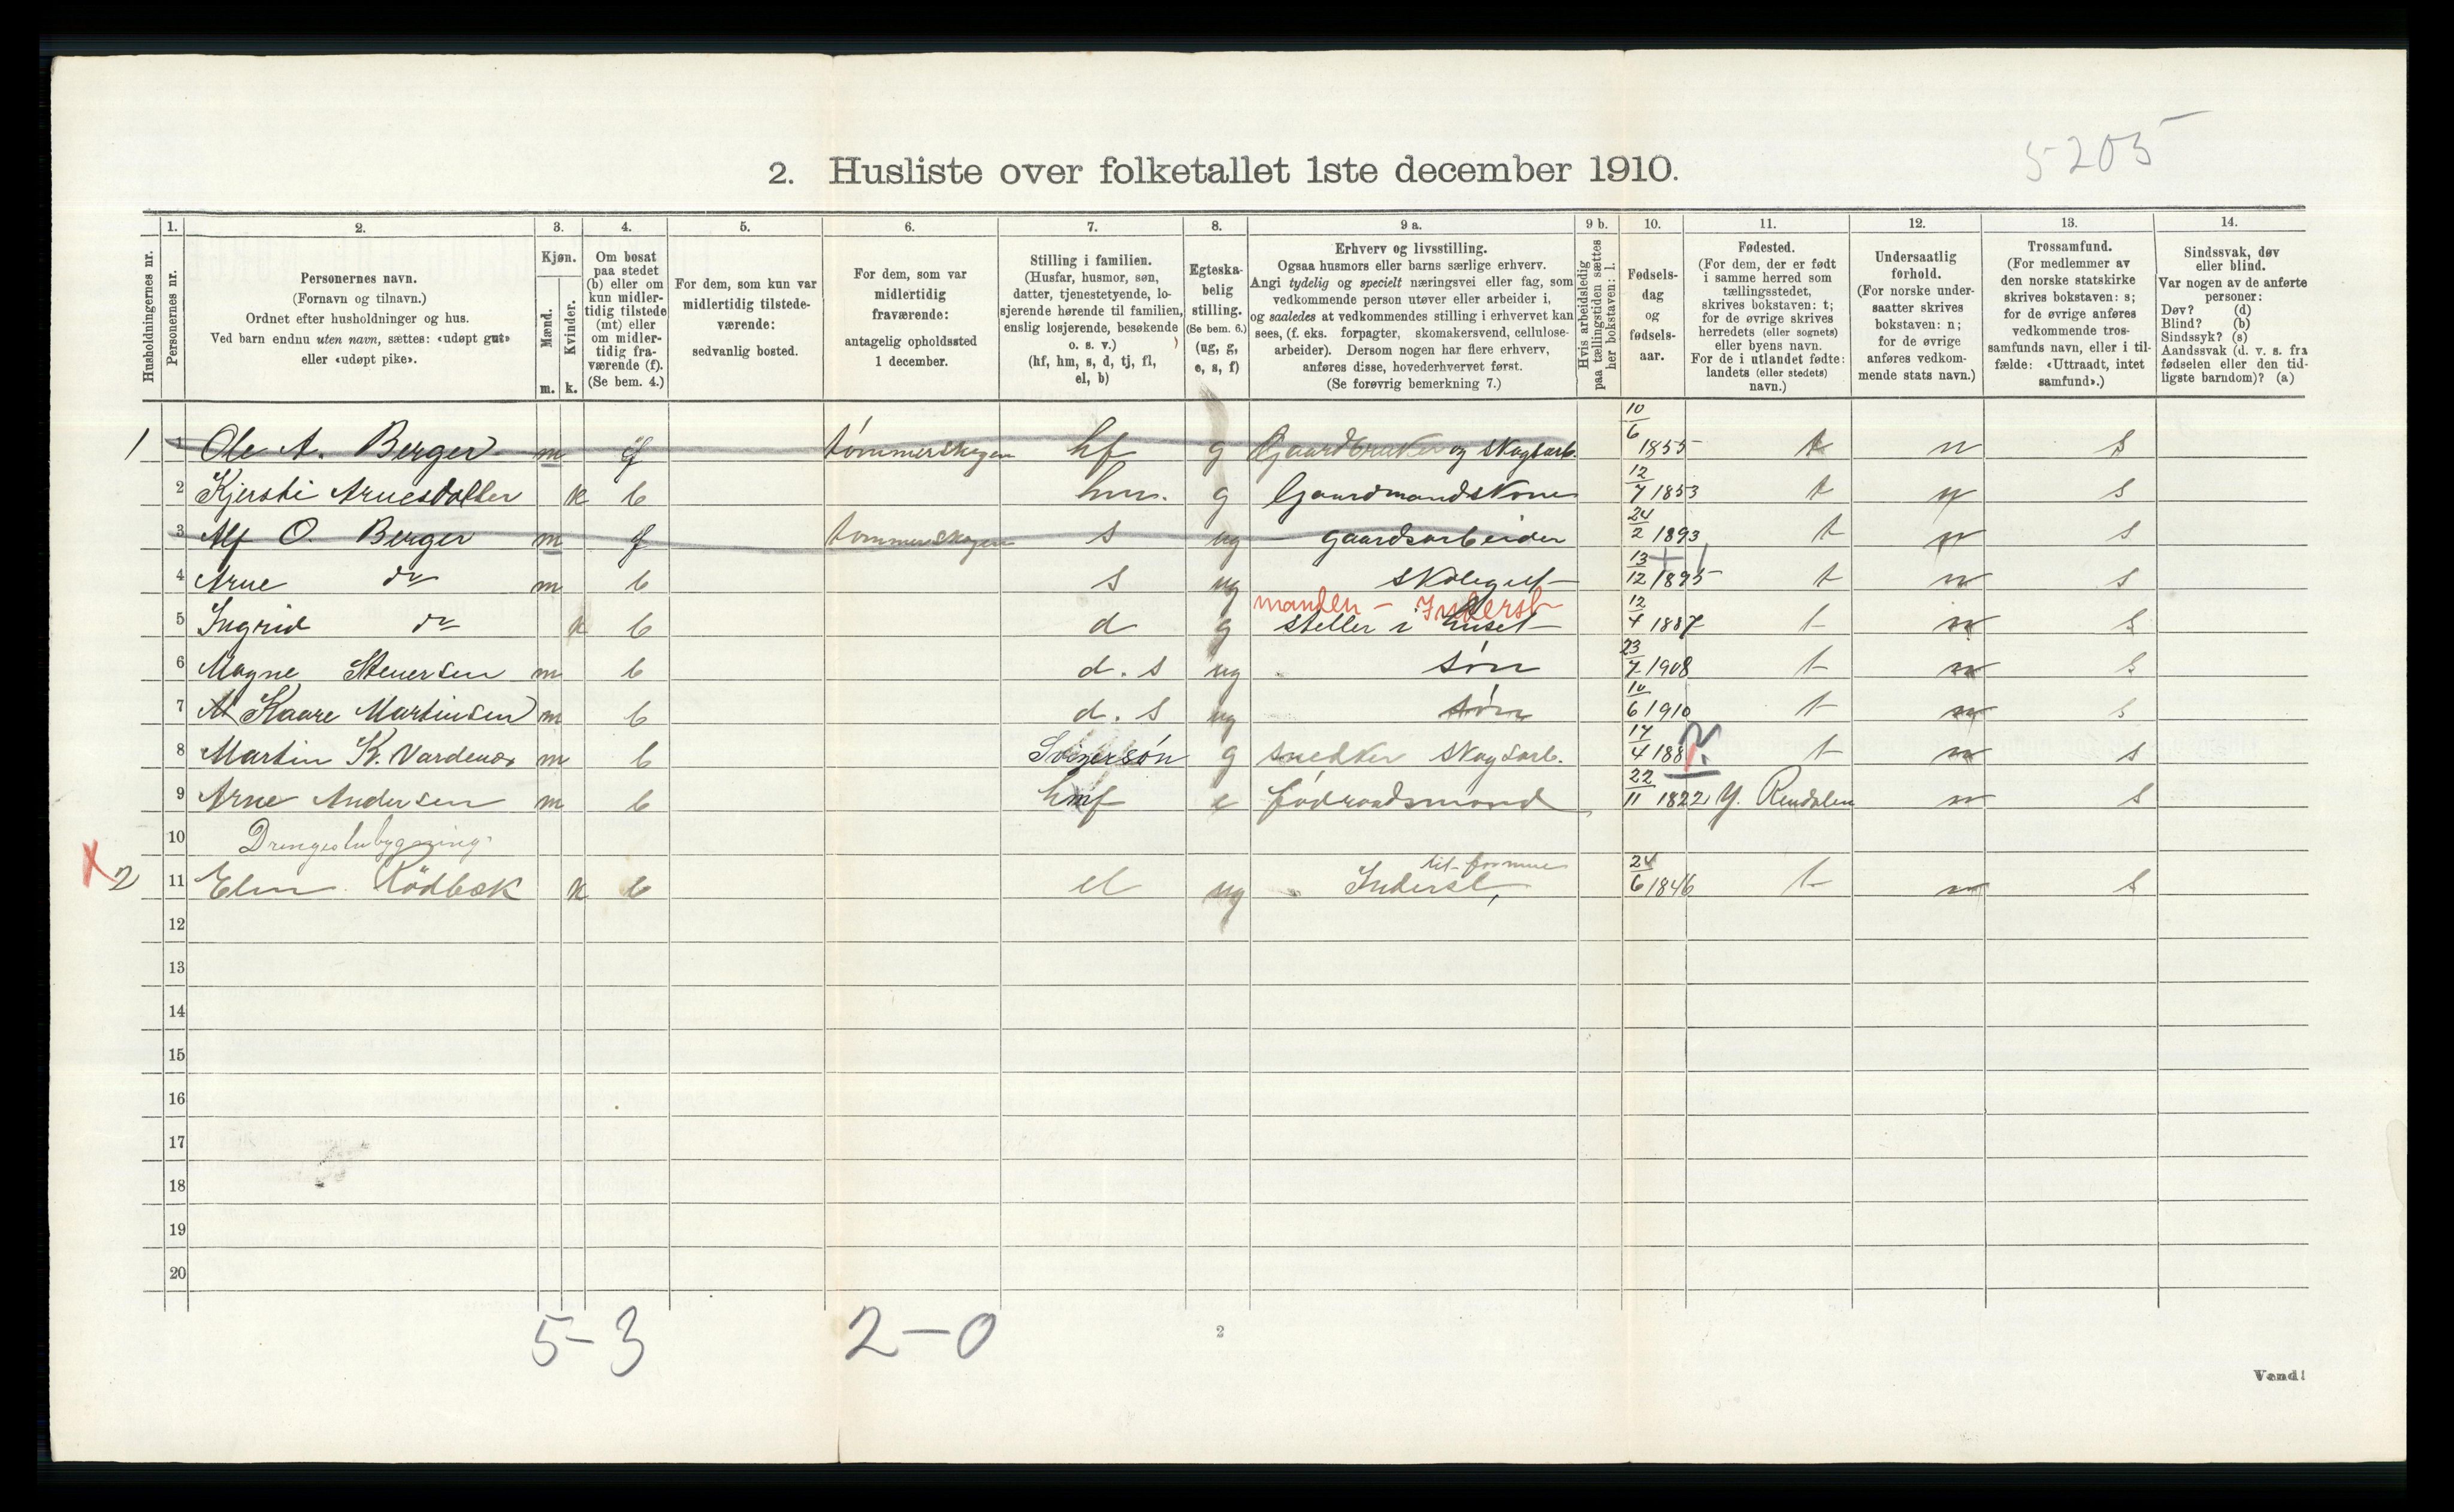 5-205
2. Husliste over folketallet 1ste december 1910.
1. 2. 3. 4. 5. 6. 7. 8. 9 a. 9 b. 10. 11. 12. 13. 14.
Husholdningernes nr.
Personernes nr.
Personernes navn.
(Fornavn og tilnavn.)
Ordnet efter husholdninger og hus.
Ved barn endnu uten navn, sættes: «udøpt gut»
eller «udøpt pike».
Kjøn.
Mænd.
m.
Kvinder.
k.
Om bosat
paa stedet
(b) eller om
kun midler-
tidig tilstede
(mt) eller
om midler-
tidig fra-
værende (f).
(Se bem. 4.)
For dem, som kun var
midlertidig tilstede-
værende:
sedvanlig bosted.
For dem, som var
midlertidig
fraværende:
antagelig opholdssted
1 december.
Stilling i familien.
(Husfar, husmor, søn,
datter, tjenestetyende, lo-
sjerende hørende til familien,
enslig losjerende, besøkende
o. s. v.)
(hf, hm, s, d, tj, fl,
el, b)
Egteska-
belig
stilling.
(Se bem. 6.)
(ug, g,
e, s, f)
Erhverv og livsstilling.
Ogsaa husmors eller barns særlige erhverv.
Angi tydelig og specielt næringsvei eller fag, som
vedkommende person utøver eller arbeider i,
og saaledes at vedkommendes stilling i erhvervet kan
sees, (f. eks. forpagter, skomakersvend, cellulose-
arbeider). Dersom nogen har flere erhverv,
anføres disse, hovederhvervet først.
(Se forøvrig bemerkning 7.)
Hvis arbeidsledig
paa tællingstiden sættes
her bokstaven: l.
Fødsels-
dag
og
fødsels-
aar.
Fødested.
(For dem, der er født
i samme herred som
tællingsstedet,
skrives bokstaven: t;
for de øvrige skrives
herredets (eller sognets)
eller byens navn.
For de i utlandet fødte:
landets (eller stedets)
navn.)
Undersaatlig
forhold.
(For norske under-
saatter skrives
bokstaven: n;
for de øvrige
anføres vedkom-
mende stats navn.)
Trossamfund.
(For medlemmer av
den norske statskirke
skrives bokstaven: s;
for de øvrige anføres
vedkommende tros-
samfunds navn, eller i til-
fælde: «Uttraadt, intet
samfund».)
Sindssvak, døv
eller blind.
Var nogen av de anførte
personer:
Døv? (d)
Blind? (b)
Sindssyk? (s)
Aandssvak (d. v. s. fra
fødselen eller den tid-
ligste barndom)? (a)
1 1 Ole A. Berger m f tømmerskogen hf g Gaardbruker og skogsarb. 10/6 1855 t n s
2 Kjersti Arnesdatter k b hm. g Gaardmandskone 12/7 1853 t n s
3 Alf O. Berger m f tømmerskogen s ug gaardsarbeider 24/2 1893 t n s
4 Arne do m b s ug skolegut 13/12 1895 t n s
manden - Inderst
5 Ingrid do k b d g steller i huset 12/4 1887 t n s
6 Magne Stenersen m b d. s ug søn 23/7 1908 t n s
7 Kaare Martinsen m b d. s ug søn 10/6 1910 t n s
8 Martin K. m b Svigersøn g snedker skogsarb. 17/4 188 ? t n s
9 Arne Andersen m b hmf e födraadsmand 22/11 1822 Y. Rendalen n s
10 Drengestubygning
til formue
X 2 11 Elen Rödbæk k b el ug Inderst, 24/6 1846 t n s
12
13
14
15
16
17
18
19
20
5-3 2-0
2
Vend!